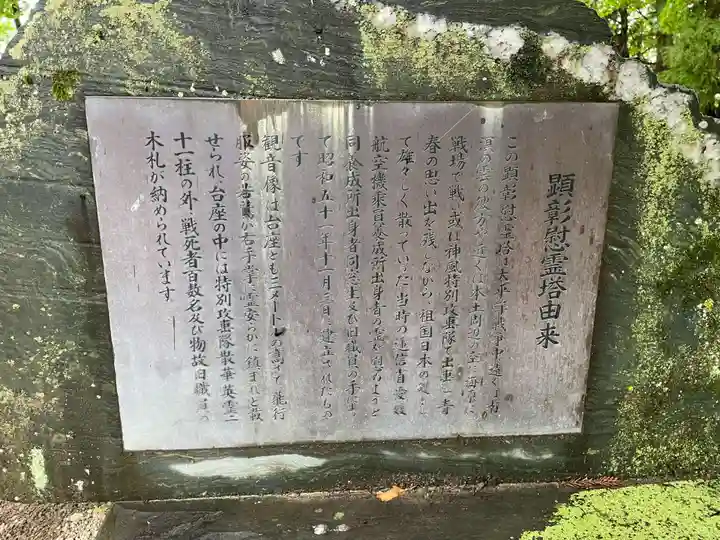 顕彰慰霊塔由来
この顕彰慰霊塔は太平洋戦争中遠くは南
溟の雲の彼方や近くは本土周辺の空に海に
戦場で戦い或は神風特別攻撃隊で出撃し青
春の思い出を残しながら、祖国日本の
て雄々しく散っていった当時の逓信省愛媛
航空機乗員養成所出身者の霊を
同養成所出身者同窓生及び旧職員の手に
て昭和五十一年十一月三日に建立されたもの
です
観音像は台座とも三メートルの高さで飛行
服姿の若鷲が右手掌に霊安らかに鎮まれと載
せられ、台座の中には特別攻撃隊散華英霊二
十一柱の外、戦死者百数名及び物故旧職員の
木札が納められています。